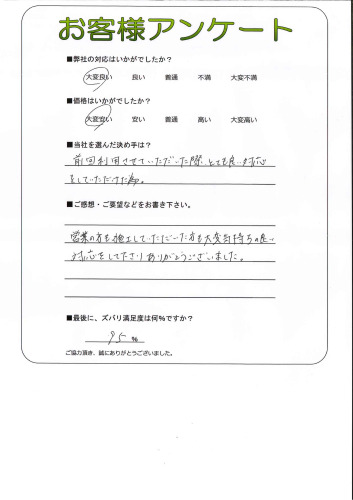 お客様アンケート
■弊社の対応はいかがでしたか？
大変良い 良い 普通 不満 大変不満
■価格はいかがでしたか？
大変安い 安い 普通 高い 大変高い
■当社を選んだ決め手は？
前回利用させていただいた際、とても良い対応
をしていただけた為。
■ご感想・ご要望などをお書き下さい。
営業の方も施工していただいた方も大変気持ちの良い
対応をして下さりありがとうございました。
■最後に、ズバリ満足度は何％ですか？
95 %
ご協力頂き、誠にありがとうございました。